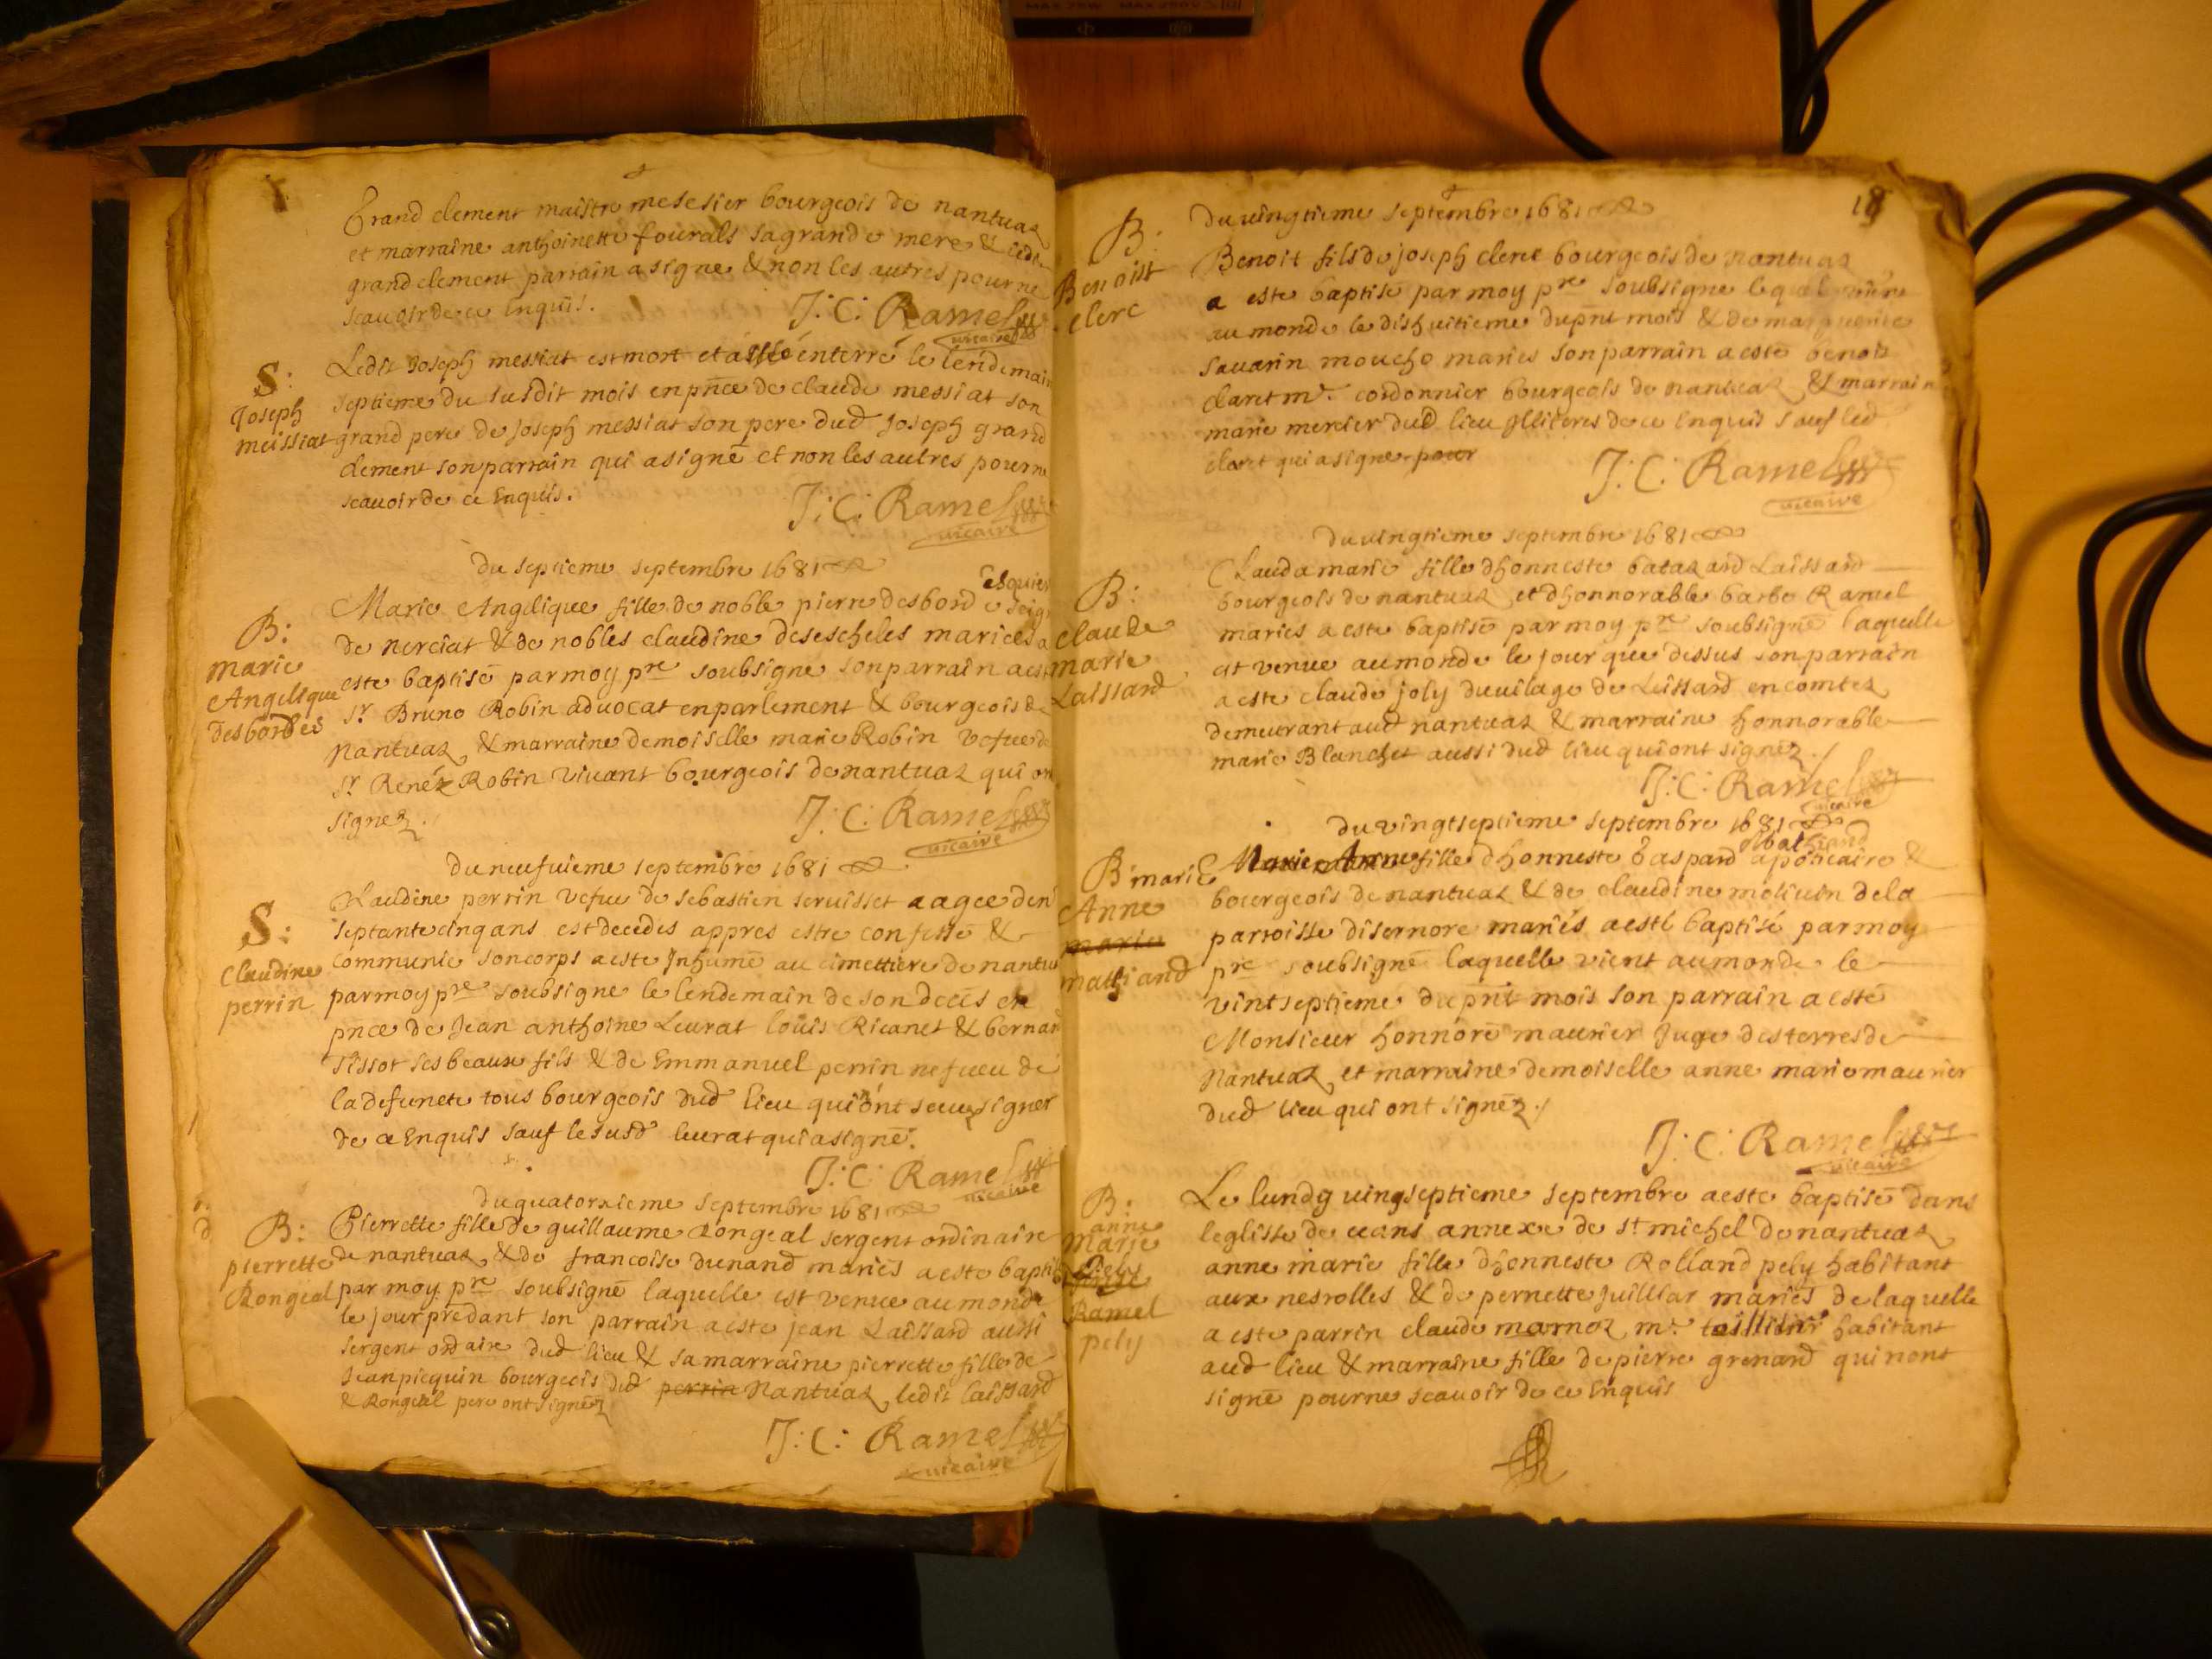 Grand clement maistre mesesier bourgeois de nantuaz
et marraine anthoinette fourals sa grande mere & ledit
grand clement parrain a signe & non les autres pour ne
scauoir de ce Enquis.
J: C: Ramel
vicaire
S:
Joseph
meissiat
Ledit Joseph messiat est mort et a esté enterré le lendemain
septieme du susdit mois en pn̄ce de claude messiat son
grand pere de Joseph messiat son pere dud Joseph grand
clement son parrain qui a signé et non les autres pour ne
scauoir de ce Enquis.
J: C: Ramel
vicaire
du septieme septembre 1681
B:
marie
Angelique
desbordes
Marie Angelique fille de noble pierre desbord esquier seig
de nerciat & de nobles claudine desescheles maries a
este baptisé par moy pre soubsigne son parrain a est
Sr Bruno Robin aduocat en parlement & bourgeois de
nantuaz & marraine demoiselle marie Robin vefue de
Sr Renéz Robin viuant bourgeois de nantuaz qui on
signez.
J: C: Ramel
vicaire
du neufuieme septembre 1681
S:
Claudine
perrin
Claudine perrin vefue de Sebastien seruisset aagee den
septante cinq ans est decedes appres estre confesse &
communie son corps a este Inhumé au cimettiere de nantua
par moy pre soubsigne le lendemain de son decés en
pnce de Jean anthoine Leurat loüis Ricanet & bernar
Tissot ses beaux fils & de Emmanuel perrin nefueu de
la defuncte tous bourgeois dud lieu qui n'ont sceuz signer
de ce Enquis sauf le susd leurat qui a signé.
J: C: Ramel
vicaire
du quatorzieme septembre 1681
B:
pierrette
Rongeal
Pierrette fille de guillaume Rongeal sergent ordinaire
de nantuaz & de francoise dunand mariés a este baptis
par moy pre soubsigné laquelle est venue au monde
le jour predant son parrain a este jean Laissard aussi
sergent ordaire dud lieu & sa marraine pierrette fille de
Jean picquin bourgeois dud perrin Nantuaz ledit laissard
& Rongeal pere ont signéz
J: C: Ramel
vicaire
18
du uingtieme septembre 1681
B:
Benoist
clerc
Benoit fils de joseph clerc bourgeois de nantuaz
a este baptisé par moy pre soubsigne lequel
au monde le dishuitieme du pn̄t mois & de marguerite
Sauarin moucho maries son parrain a esté benoit
claret mr. cordonnier bourgeois de nantuaz & marrain
marie mercier dud lieu Illiteres de ce Enquis sauf led
claret qui a signe pour
J: C: Ramel
vicaire
du uingtieme septembre 1681
B:
claude
marie
Laissard
Clauda marie fille dhonneste batazard Laissard
bourgeois de nantuaz et dhonnorable barbe Ramel
maries a este baptisé par moy pre soubsigné laquelle
at venue au monde le jour que dessus son parrain
a este claude joly du uilage de Leissard en comtez
demeurant aud nantuaz & marraine honnorable
marie Blanchet aussi dud lieu qui ont signéz.
J: C: Ramel
vicaire
du vingtseptieme septembre 1681
B: marie
Anne
marie
mathiand
Marie Anne fille dhonneste Gaspard Mathiand apoticaire &
bourgeois de nantuaz & de claudine moliuin de la
parroisse disernore mariés a esté baptisé par moy
pre soubsigné laquelle vient au monde le
vintseptieme du pn̄t mois son parrain a esté
Monsieur honnoré maurier Juge des terres de
Nantuaz et marraine demoiselle anne marie maurier
dud lieu qui ont signéz.
J: C: Ramel
vicaire
B:
anne
marie
pely
Ramel
pely
Le lundy uingseptieme septembre a este baptisé dans
leglisse de ceans annexe de st michel de nantuaz
anne marie fille dhonneste Rolland pely habitant
aux nesrolles & de pernette Juilllar mariés de laquelle
a este parrin claude marnoz mr. taillieur habitant
aud lieu & marraine fille de pierre grenard qui nont
signé pour ne scauoir de ce Enquis